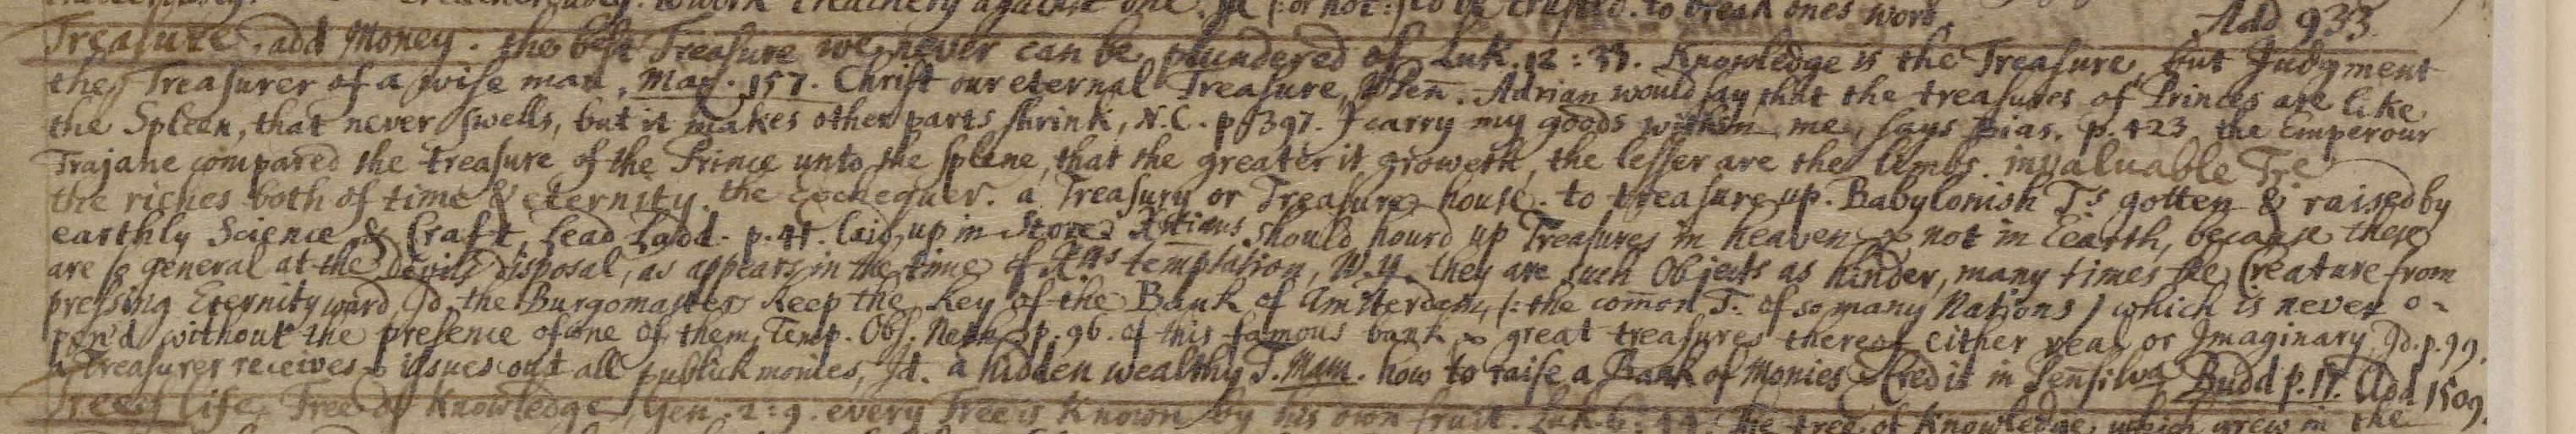 treachery against one. Id (: or not :) to be trusted. to break ones word.
Add 933.
Treasure, add Money. the best Treasure we never can be plundered of Luk. 12 : 33. Knowledge is the Treasure, but Judgment
the Treasurer of a wise man, May. 157. Christ our eternal Treasure, Pen̄. Adrian would say that the treasures of Princes are like
the Spleen, that never swells, but it makes other parts shrink, N.C. p. 397. I carry my goods within me, says Bias. p. 423. the Emperour
Trajane compared the treasure of the Prince unto the splene, that the greater it groweth, the lesser are the limbs. invaluable Tre
the riches both of time & eternity. the Exchequer. a Treasury or Treasure house. to treasure up. Babylonish Ts gotten & raised by
earthly Science & Craft, Lead Ladd. p. 41. laid up in Store. Xstians should hourd up Treasures in heaven & not in Eearth, because these
are so general at the devils disposal, as appears in the time of Xts temptation, W.Y. they are such Objects as hinder, many times the Creature from
pressing Eternity ward, Id. the Burgomasters keep the key of the Bank of Amsterdam, (: the com̄on T. of so many Nations / which is never o-
pen'd without the presence of one of them, Temp. Obs. Neth. p. 96. of this famous bank & great treasures thereof either real or Imaginary, Id. p. 99.
a Treasurer receives & issues out all publick monies, Id. a hidden wealthy T. Mam. how to raise a Bank of Monies & Credit in Pen̄silva Budd p. 17. Add 1509.
Tree of life, Tree of Knowledge, Gen. 2 : 9. every Tree is known by his own fruit. Luk. 6 : 44. The tree of Knowledge, which grew in the